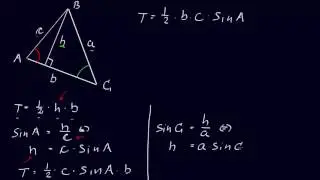 B
c
h
a
A
b
C
T = 1/2 · b · c · sin A
T = 1/2 · h · b
sin A = h/c ⇔
h = c · sin A
T = 1/2 · c · sin A · b
sin C = h/a ⇔
h = a sin C